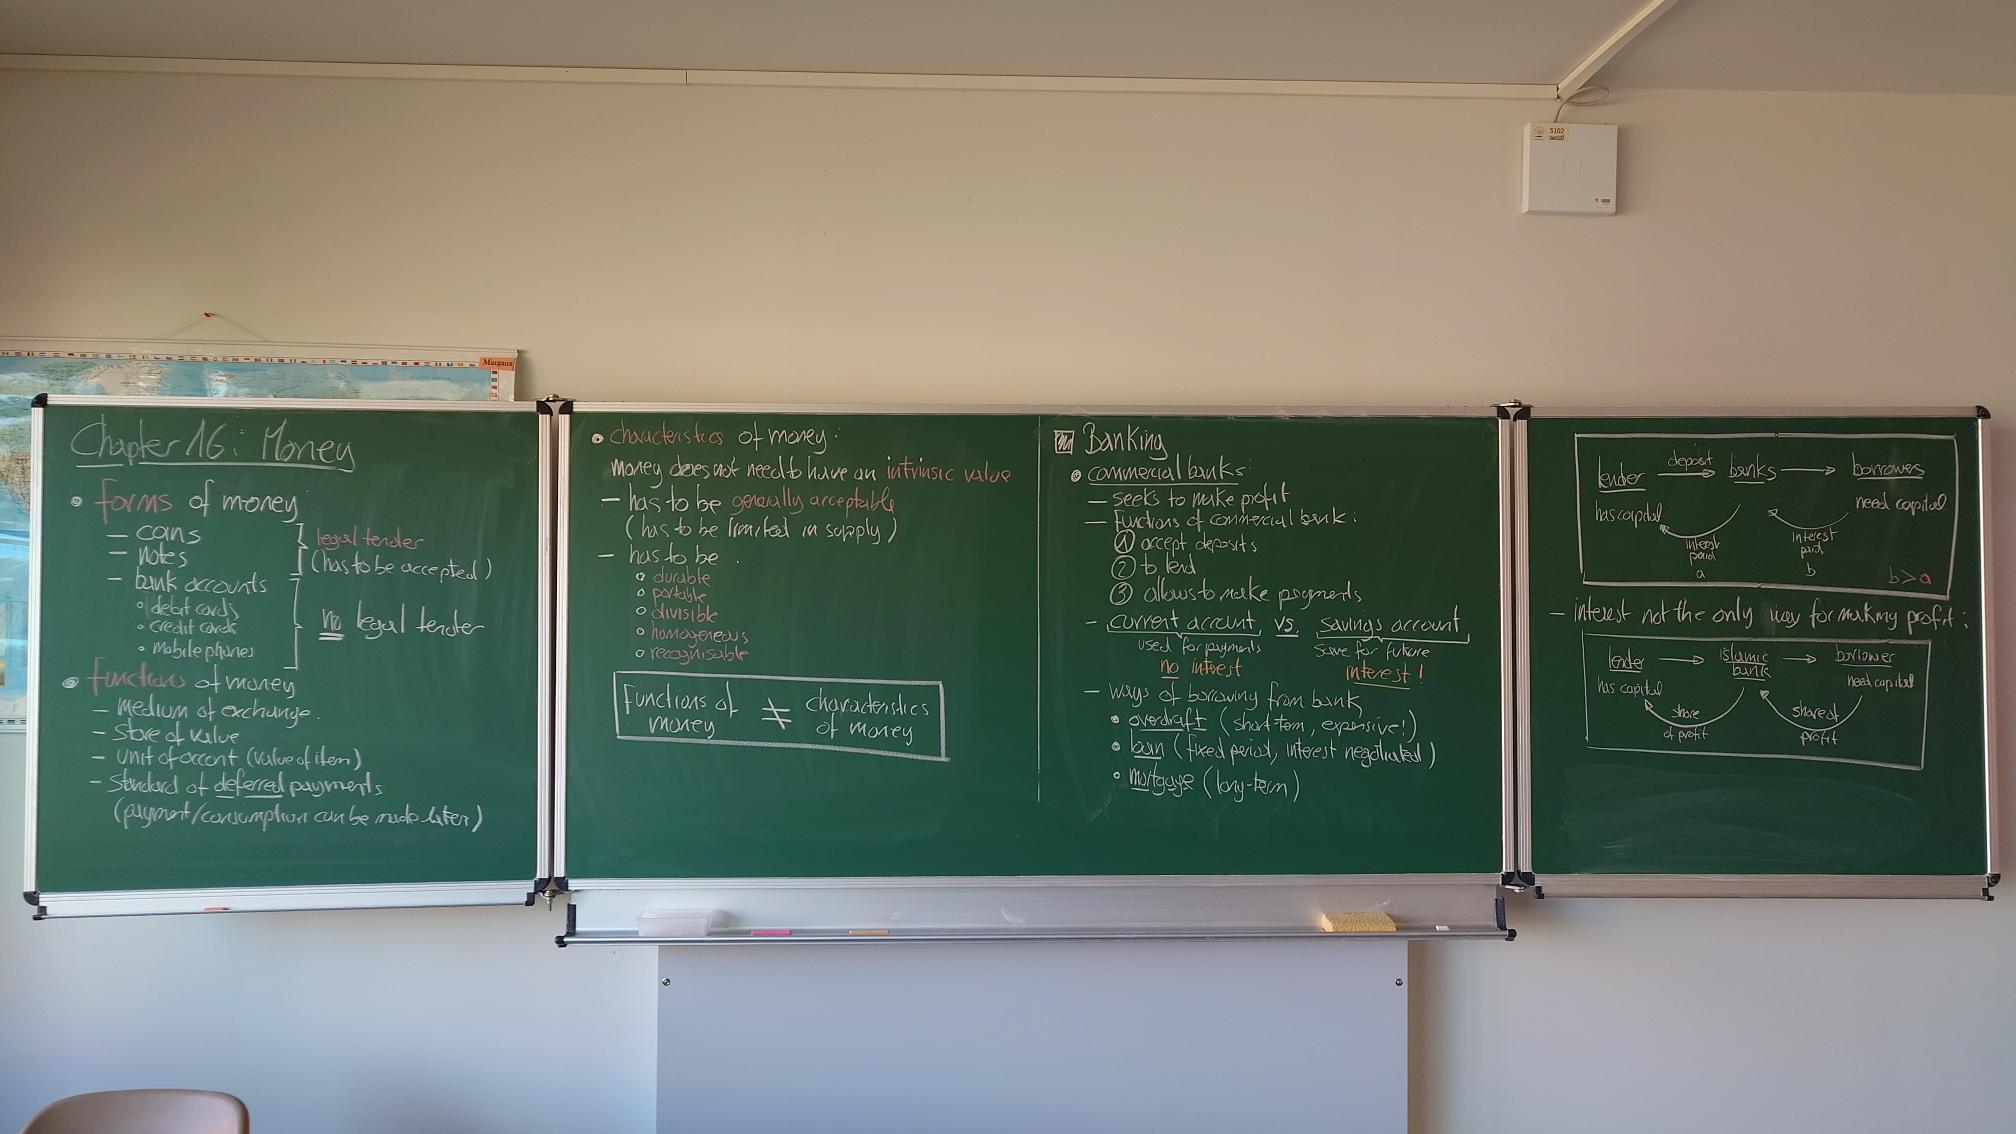 Margaux
5102
Chapter 16: Money
• forms of money:
– coins
– notes
legal tender
(has to be accepted)
– bank accounts
° debit cards
° credit cards
° mobile phones
no legal tender
• functions of money
– medium of exchange.
– store of value
– unit of account (value of item)
– standard of deferred payments
(payment/consumption can be made later)
• characteristics of money:
money does not need to have an intrinsic value
– has to be generally acceptable
(has to be limited in supply)
– has to be:
° durable
° portable
° divisible
° homogeneous
° recognisable
Functions of money ≠ characteristics of money
Banking
• commercial banks:
– seeks to make profit
– functions of commercial bank:
① accept deposits
② to lend
③ allows to make payments
– current account vs. savings account
used for payments save for future
no interest interest!
– ways of borrowing from bank
• overdraft (short term, expensive!)
• loan (fixed period, interest negotiated)
• mortgage (long-term)
lender deposit banks borrowers
has capital need capital
interest paid a
interest paid b
b>a
– interest not the only way for making profit:
lender islamic bank borrower
has capital need capital
share of profit
share of profit